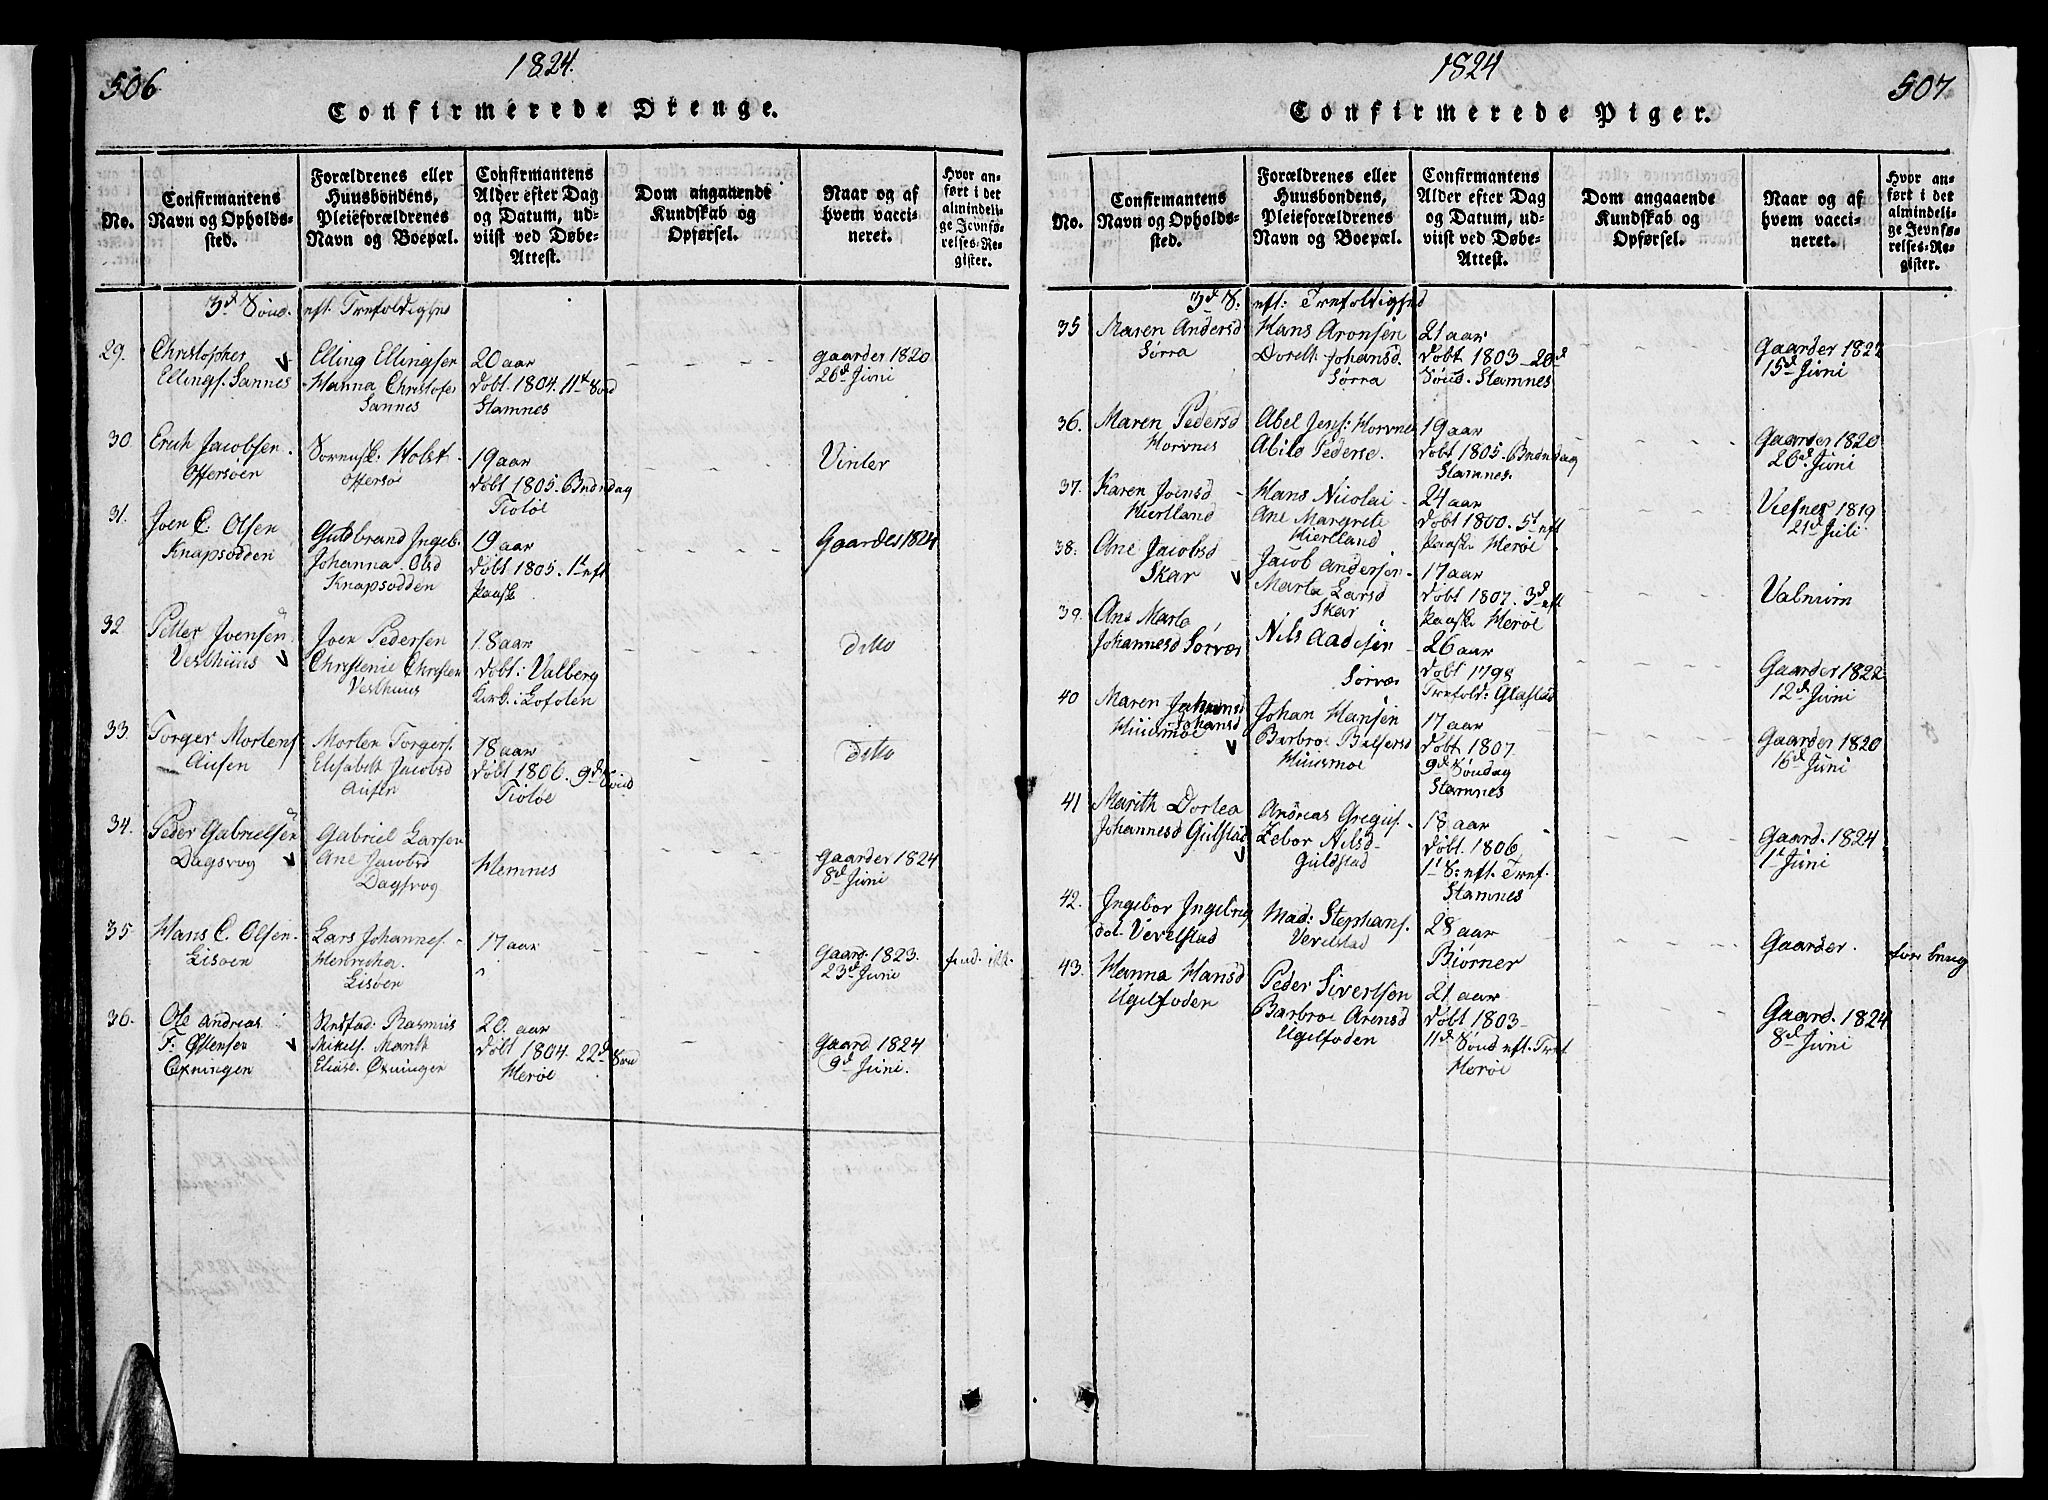 506
1824.
Confirmerede Drenge.
No.
Confirmantens
Navn og Opholds-
sted.
Forældrenes eller
Huusbondens,
Pleieforældrenes
Navn og Boepæl.
Confirmantens
Alder efter Dag
og Datum, ud-
viist ved Døbe-
Attest.
Dom angaaende
Kundskab og
Opførsel.
Naar og af
hvem vacci-
neret.
Hvor an-
ført i det
almindeli-
ge Jevnfø-
relses-Re-
gister.
3d Sönd. eft. Trefoldighed
29.
Christopher
Ellings. Sannes
Elling Ellingsen
Hanna Christofer
Sannes
20 aar
döbt 1804. 11te Sönd
Stamnes
gaarder 1820
26d Juni
30
Erich Jacobsen
Offersöen
Sörensk. Holst
offersö
19 aar
döbt 1805. Budndag
Tiotöe
Vinter
31.
Joen C. Olsen
Knapsodden
Guldbrand Ingeb.
Johanna Olsd
Knapsodden
19 aar
döbt 1805. 1t eft
Paask
Gaarder 1824
32
Petter Joensen
Vesthuus
Joen Pedersen
Christenie Christen
Vesthuus
18 aar
döbt: Valberg
Kirk. i Lofoten
ditto
33.
Torger Mortens
Aufen
Morten Torgers.
Elisabeth Jacobsd
Aufen
18 aar
döbt 1806. 9d Sönd
Tiotöe
ditto
34.
Peder Gabrielsen
Dagsvog
Gabriel Larsen
Ane Jacobsd
Dagsvog
Hemnes
Gaarder 1824
8d Juni
35
Hans C. Olsen
Lisöen
Lars Johannes.
Henricha
Lisöen
17 aar
Gaard. 1823.
23d Juni
36.
Ole Andreas
F. Ostensen
Öxningen
Rasmus
Mikels. Marith
Elias. Öxningen
20 aar
döbt 1804. 22d Sönd
Heröe
Gaard 1824
9d Juni.
1824
507
Confirmerede Piger.
No.
Confirmantens
Navn og Opholds-
sted.
Forældrenes eller
Huusbondens,
Pleieforældrenes
Navn og Boepæl.
Confirmantens
Alder efter Dag
og Datum, ud-
viist ved Døbe-
Attest.
Dom angaaende
Kundskab og
Opførsel.
Naar og af
hvem vacci-
neret.
Hvor an-
ført i det
almindeli-
ge Jevnfø-
relses-Re-
gister.
3d S. eft: Trefoldighed
35
Maren Andersd
Sörra
Hans Aronsen
Doreth Johansd.
Sörra
21 aar
döbt 1803 20d
Sönd. Stamnes
Gaarder 1822
15d Juni
36.
Maren Pedersd
Horvnes
Abel Jens: Horvnes
Abilö Pederse.
19 aar
döbt 1805. Budndag
Stamnes.
Gaarder 1820
26d Juni
37.
Karen Joensd
Hiertland
Hans Nicolai
Ane Margrete
Hiertland
24 aar
döbt 1800. 5t eft
Paaske Heröe
Viefnes 1819
21d Juli
38.
Ane Jacobsd
Skar
Jacob Andersen
Marta Larsd
Skar
17 aar
döbt 1807. 3d eft
Paaske Heröe
Valnum
39.
Ane Marta
Johannesd Sörvæs
Nils Aadesen
Sörvæs
26 aar
döbt 1798
Trefold: Glastad
Gaarder 1822
12d Juni
40
Maren
Johansd
Huusmoe
Johan Hansen
Barbroe Balsersd
Huusmoe
17 aar
döbt 1807
9d Söndag
Stamnes
Gaarder 1820
16d Juni
41
Marith Dortea
Johannesd Gulstad
Andreas Gregus
Zebor Nilsd
Guldstad
18 aar
döbt. 1806
1t S: eft. Tref.
Stamnes
Gaard. 1824
1t Juni
42.
Ingebor Ingebrig
dat Vevelstad
Mad: Stephans.
Vevelstad
28 aar
Biörner
Gaarder.
43.
Hanna Hansd
Ugelfoden
Peder Sivertsen
Barbroe Arensd
Ugelfoden
21 aar
döbt 1803
11d Sönd eft. Tref
Heröe
Gaard. 1824
8d Juni